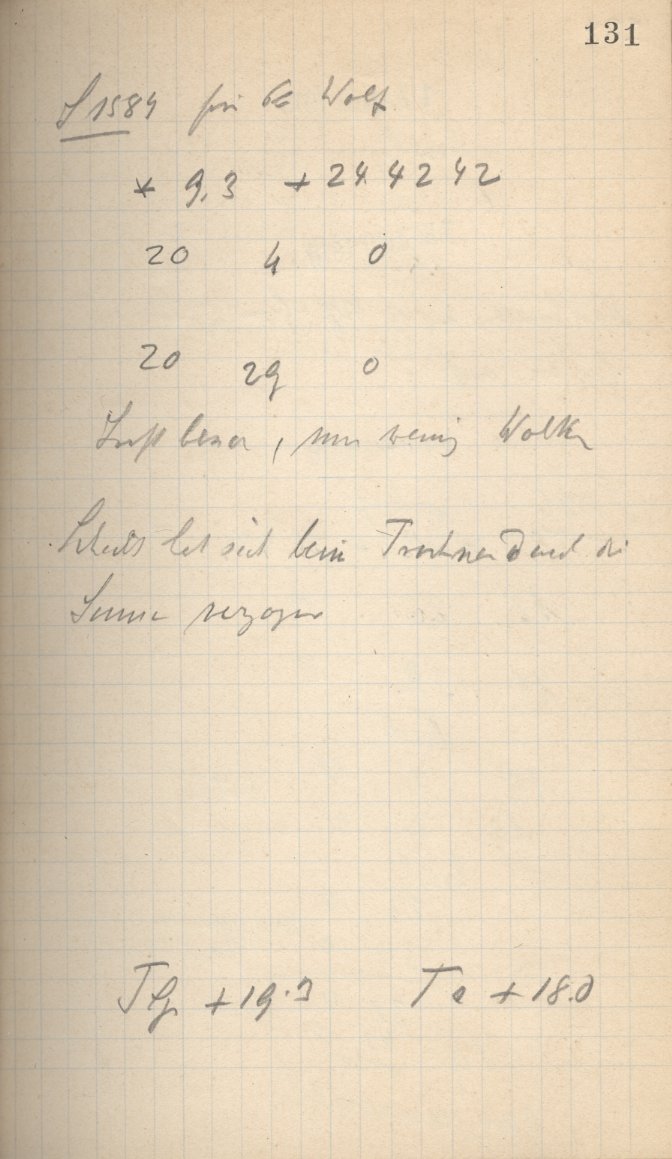 131
S 1584 für Wolf
* 9.3 + 24 42 42
20 4 0
20 29 0
Luft besser, nur wenig Wolken
Schicht hat sich beim Trocknen durch die
Sonne verzogen
T + 19.3 Ta + 18.0